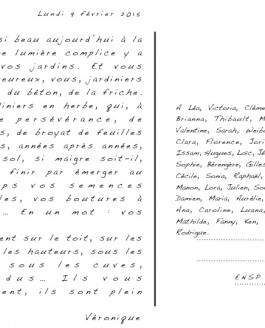 Lundi 9 février 2015
si beau aujourd'hui à la
e lumière complice y a
vos jardins. Et vous
eureux, vous, jardiniers
du béton, de la friche.
diniers en herbe, qui, à
e persévérance, de
s, de broyat de feuilles
s, années après années,
sol, si maigre soit-il,
finir par émerger au
mps vos semences
lles, vos boutures à
… En un mot : vos
ent sur le toit, sur les
les hauteurs, sous les
sous les cuves,
dus… Ils vous
ent, ils sont plein
Véronique
A Léa, Victoria, Cléme
Brianna, Thibault, M
Valentine, Sarah, Weib
Clara, Florence, Jori
Issam, Hugues, Loïc, Jé
Sophie, Bérengère, Gilles
Cécile, Sonia, Raphaël,
Manon, Lora, Julien, So
Damien, Maria, Aurélie,
Ana, Caroline, Luana,
Mathilde, Fanny, Ken,
Rodrigue.
ENSP